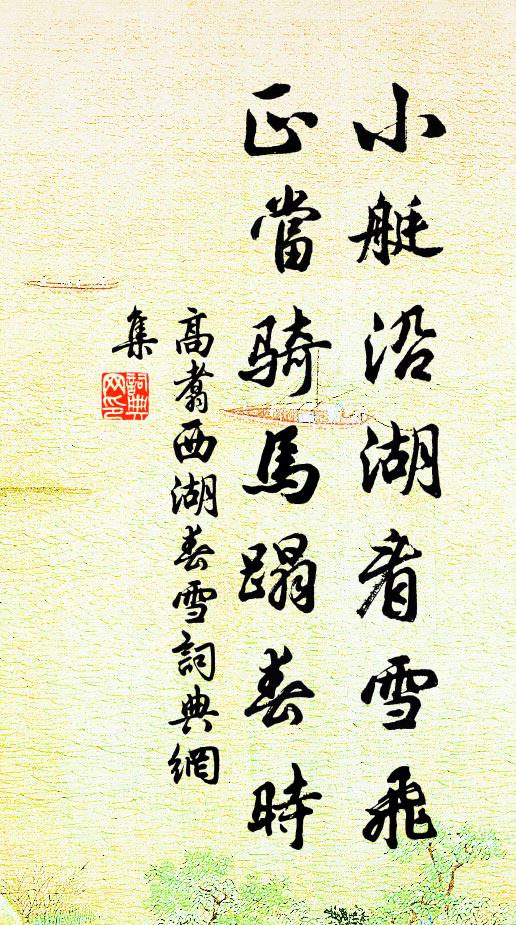 小艇沿湖看雪飛
正當騎馬蹋春時
高翥西湖春雪詞典網
集
詞典網印